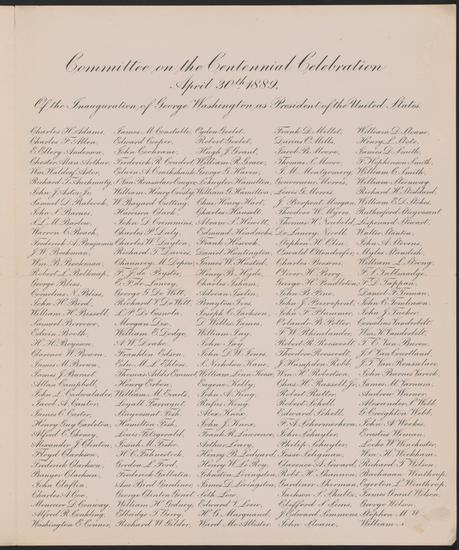 Committee on the Centennial Celebration
April 30th 1889.
Of the Inauguration of George Washington as President of the United States.
Charles H. Adams, James M. Constable, Ogden Goelet, Frank D. Millet, William D. Sloane,
Charles F. Allen, Edward Cooper, Robert Goelet, Darius O. Mills, Henry L. Slote,
E. Ellery Anderson, John Cochrane, Hugh J. Grant, Jacob B. Moore, James D. Smith,
Chester Alan Arthur, Frederick R. Coudert, William R. Grace, Thomas L. Moore, F. Hopkinson Smith,
Wm Waldorf Astor, Edwin A. Cruikshank, George G. Haven, J. M. Montgomery, William E. Smith,
Richard T. Auchmuty, S. Van Rensselaer Cruger, Schuyler Hamilton, Gouverneur Morris, William Steinway,
John J. Astor, Jr. William Henry Crosby, William G. Hamilton, Levi P. Morton, Richard H. Stoddard,
Samuel D. Babcock, W. Bayard Cutting, Chas. Henry Hart, J. Pierpont Morgan, William E. D. Stokes,
John S. Barnes, Harrison Clark, Charles Mansell, Theodore W. Myers, Rutherfurd Stuyvesant,
S. L. M. Barlow, John D. Crimmins, Abram S. Hewitt, Thomas H. Newbold, Lispenard Stewart,
Warren C. Beach, Charles P. Daly, Edmund Hendricks, De Lancey Nicoll, Walter Stanton,
Frederic A. Benjamin, Charles W. Dayton, Frank Hiscock, Stephen H. Olin, John A. Stevens,
J. W. Beekman, Richard T. Davies, Daniel Huntington, Oswald Ottendorfer, Myles Standish,
Wm B. Beekman, Chauncey M. Depew, James W. Husted, Charles Parsons, William L. Strong,
Robert L. Belknap, F. J. de Peyster, Henry B. Hyde, Oliver H. Perry, F. S. Tallmadge,
George Bliss, E. F. de Lancey, Charles Isham, George H. Pendleton, F. D. Tappan,
Cornelius N. Bliss, George G. De Witt, Adrian Iselin, John B. Pine, Daniel F. Tiemann,
John H. Bird, Richard V. De Witt, Brayton Ives, John J. Pierrepont, John C. Tomlinson,
William H. Bissell, L. P. De Cesnola, Joseph C. Jackson, John F. Plummer, John J. Tucker,
Samuel Borrowe, Morgan Dix, D. Willis James, Orlando B. Potter, Cornelius Vanderbilt,
Edwin Booth, William E. Dodge, William Jay, F. W. Rhinelander, Wm K. Vanderbilt,
H. H. Boyesen, A. W. Drake, John Jay, Robert B. Roosevelt, T. C. Van Buren,
Clarence W. Bowen, Franklin Edson, John D. W. Jones, Theodore Roosevelt, J. S. Van Courtland,
James W. Brown, Edw. M. L. Ehlers, C. Nicholson Kane, J. Hampden Robb, J. T. Van Rensselaer,
James J. Burnet, Thos. Addis Emmet, William Linn Keese, Wm H. Robertson, John Barnes Varick,
Allan Campbell, Henry Erben, Eugene Kelly, Chas. H. Russell, Jr. James M. Varnum,
John L. Cadwalader, William M. Evarts, John A. King, Robert Rutter, Andrew Warner,
Jacob A. Cantor, Loyall Farragut, Rufus King, Robert Schell, Alexander S. Webb,
James C. Carter, Stuyvesant Fish, Alex. Knox, Edward Schell, G. Creighton Webb,
Henry Guy Carleton, Hamilton Fish, John J. Knox, F. A. Schermerhorn, John A. Weekes,
Alfred C. Cheney, Louis Fitzgerald, Frank R. Lawrence, John Schuyler, Erastus Wiman,
Alexander J. Clinton, Isaiah M. Fiske, Arthur Leary, Philip Schuyler, Locke W. Winchester,
Floyd Clarkson, H. C. Fahnestock, Henry B. Ledyard, Jesse Seligman, Wm H. Wickham,
Frederick Clarkson, Gordon L. Ford, Henry W. Le Roy, Clarence A. Seward, Richard T. Wilson,
Banyer Clarkson, Frederick Gallatin, Johnston Livingston, Robt. H. Shannon, Buchanan Winthrop,
John Claflin, Asa Bird Gardiner, James D. Livingston, Gardiner Sherman, Egerton L. Winthrop,
Charles A. Coe, George Clinton Genet, Seth Low, Jackson S. Schultz, James Grant Wilson,
Moncure D. Conway, William H. Gedney, Edward V. Loew, Clifford A. Sims, George Wilson,
Alfred R. Conkling, Elbridge T. Gerry, H. G. Marquand, J. Edward Simmons, Stephen M. W
Washington E. Connor, Richard W. Gilder, Ward McAllister, John Sloane, William